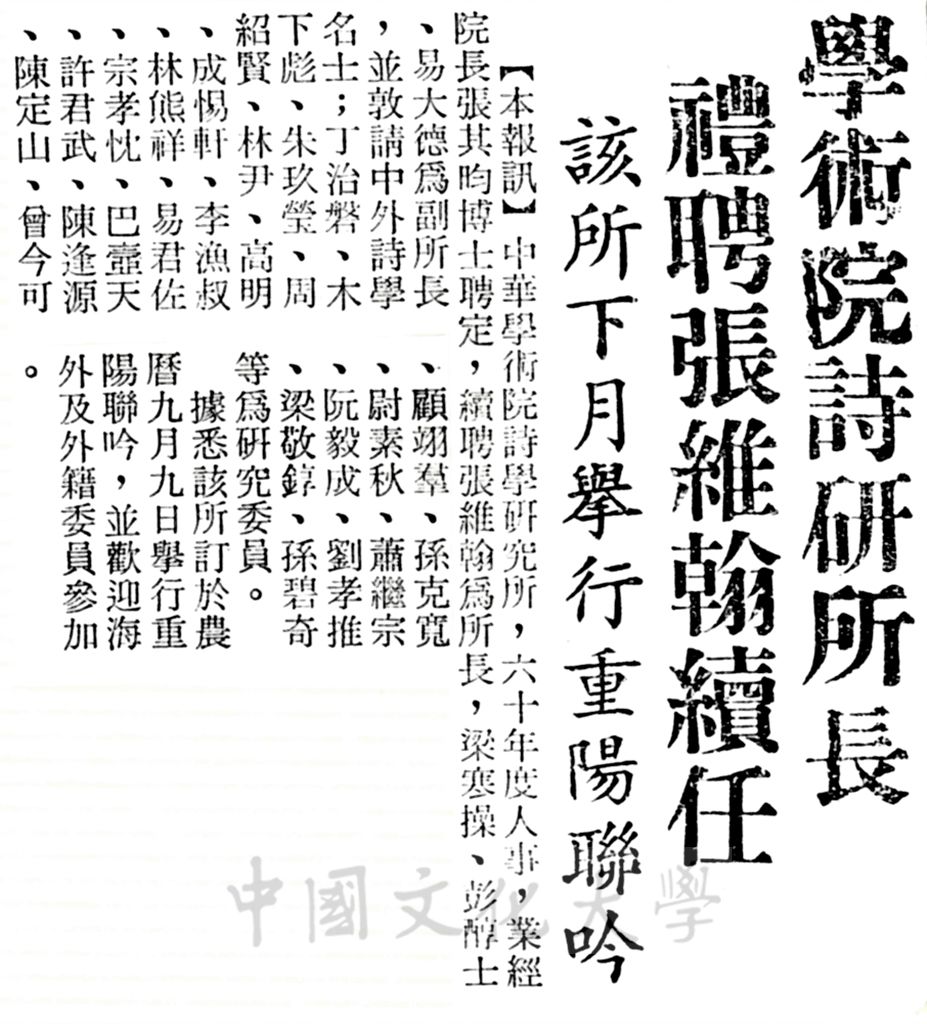 學術院詩研所長
禮聘張維翰續任
該所下月舉行重陽聯吟
【本報訊】中華學術院詩學研究所，六十年度人事，業經
院長張其昀博士聘定，續聘張維翰爲所長，梁寒操、彭醇士
、易大德爲副所長
，並敦請中外詩學
名士；丁治磐、木
下彪、朱玖瑩、周
紹賢、林尹、高明
、成惕軒、李漁叔
、林熊祥、易君佐
、宗孝忱、巴壺天
、許君武、陳逢源
、陳定山、曾今可
、顧翊羣、孫克寬
、尉素秋、蕭繼宗
、阮毅成、劉孝推
、梁敬錞、孫碧奇
等爲研究委員。
據悉該所訂於農
曆九月九日舉行重
陽聯吟，並歡迎海
外及外籍委員參加
。
中國文化大學